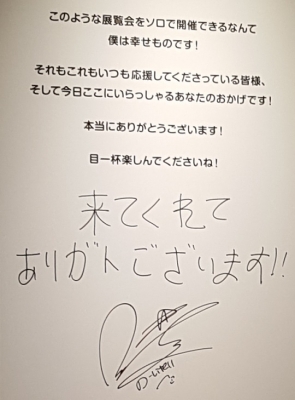 このような展覧会をソロで開催できるなんて
僕は幸せものです!
それもこれもいつも応援してくださっている皆様、
そして今日ここにいらっしゃるあなたのおかげです!
本当にありがとうございます!
目一杯楽しんでくださいね!
来てくれて
ありガトございます!!